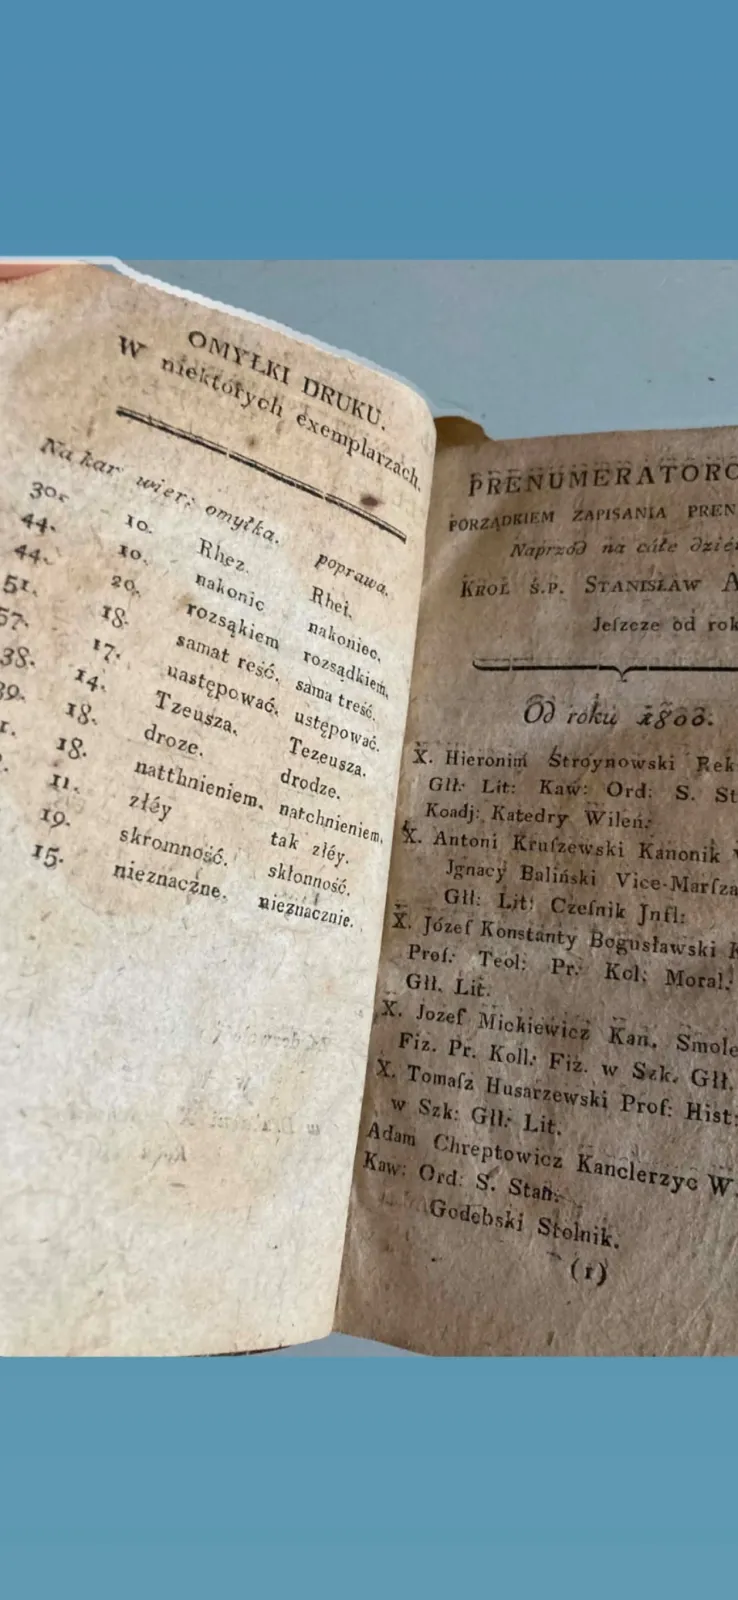 OMYŁKI DRUKU.
W niektórych exemplarzach.
Na kar wier: omyłka. poprawa.
30. 10. Rhez. Rhei.
44. 10. nakonic nakoniec.
44. 20. rozsąkiem rozsądkiem.
51. 18. samat reść. sama treść.
57. 17. uastępować. ustępować.
38. 14. Tzeusza. Tezeusza.
39. 18. droze. drodze.
1. 18. natthnieniem. natchnieniem.
11. złéy tak złéy.
19. skromność. skłonność.
15. nieznaczne. nieznacznie.
PRENUMERATORO
PORZĄDKIEM ZAPISANIA PREN
Naprzód na całe dzie
KROL Ś.P. STANISŁAW A
Jeſzcze od rok
Od roku 1803.
X. Hieronim Stroynowski Rek
Głł: Lit: Kaw: Ord: S. St
Koadj: Katedry Wileń:
X. Antoni Kruſzewski Kanonik
Jgnacy Baliński Vice-Marſza
Głł: Lit: Czeſnik Jnfl:
X. Józef Konstanty Bogusławski K
Prof: Teol: Pr. Kol: Moral.
Głł. Lit.
X. Jozef Mickiewicz Kan. Smole
Fiz. Pr. Koll: Fiz. w Szk. Głł.
X. Tomaſz Husarzewski Prof: Hist:
w Szk: Głł: Lit.
Adam Chreptowicz Kanclerzyc W.
Kaw: Ord: S. Stan:
Godebski Stolnik.
(1)